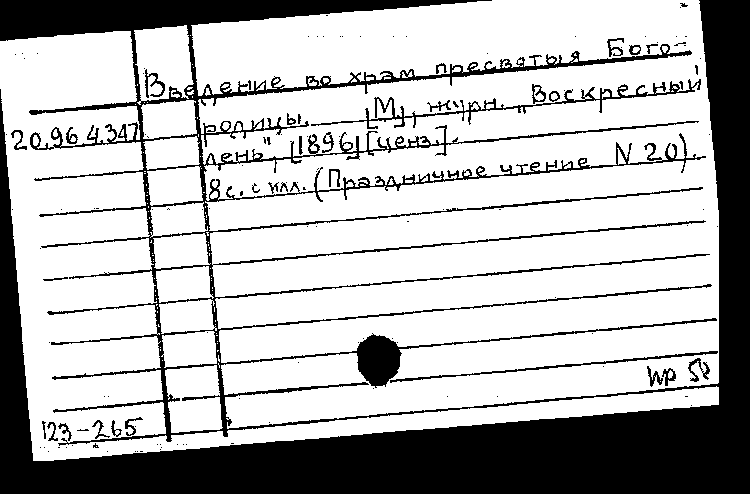 Введение во храм пресвятыя Бого-
20.96.4.347 родицы. [М], журн. „Воскресный
день", [1896] [ценз.].
8 с. с илл. (Праздничное чтение N 20).
123-265